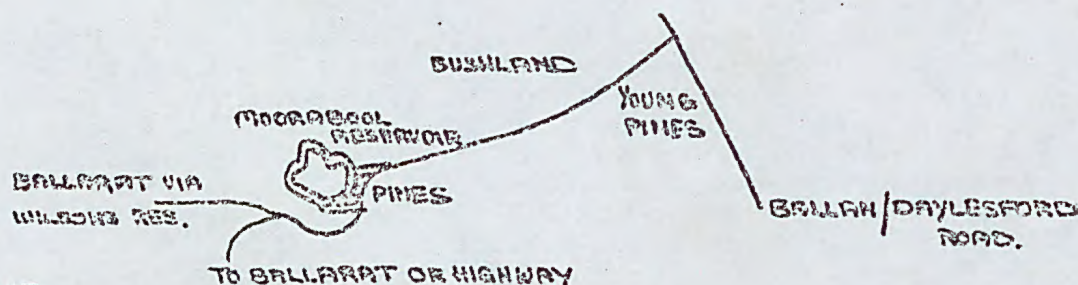 BUSHLAND
YOUNG
PINES
MOORABOOL
RESERVOIR
PINES
BALLARAT VIA
WILSONS RES.
BALLAN/DAYLESFORD
ROAD.
TO BALLARAT OR HIGHWAY